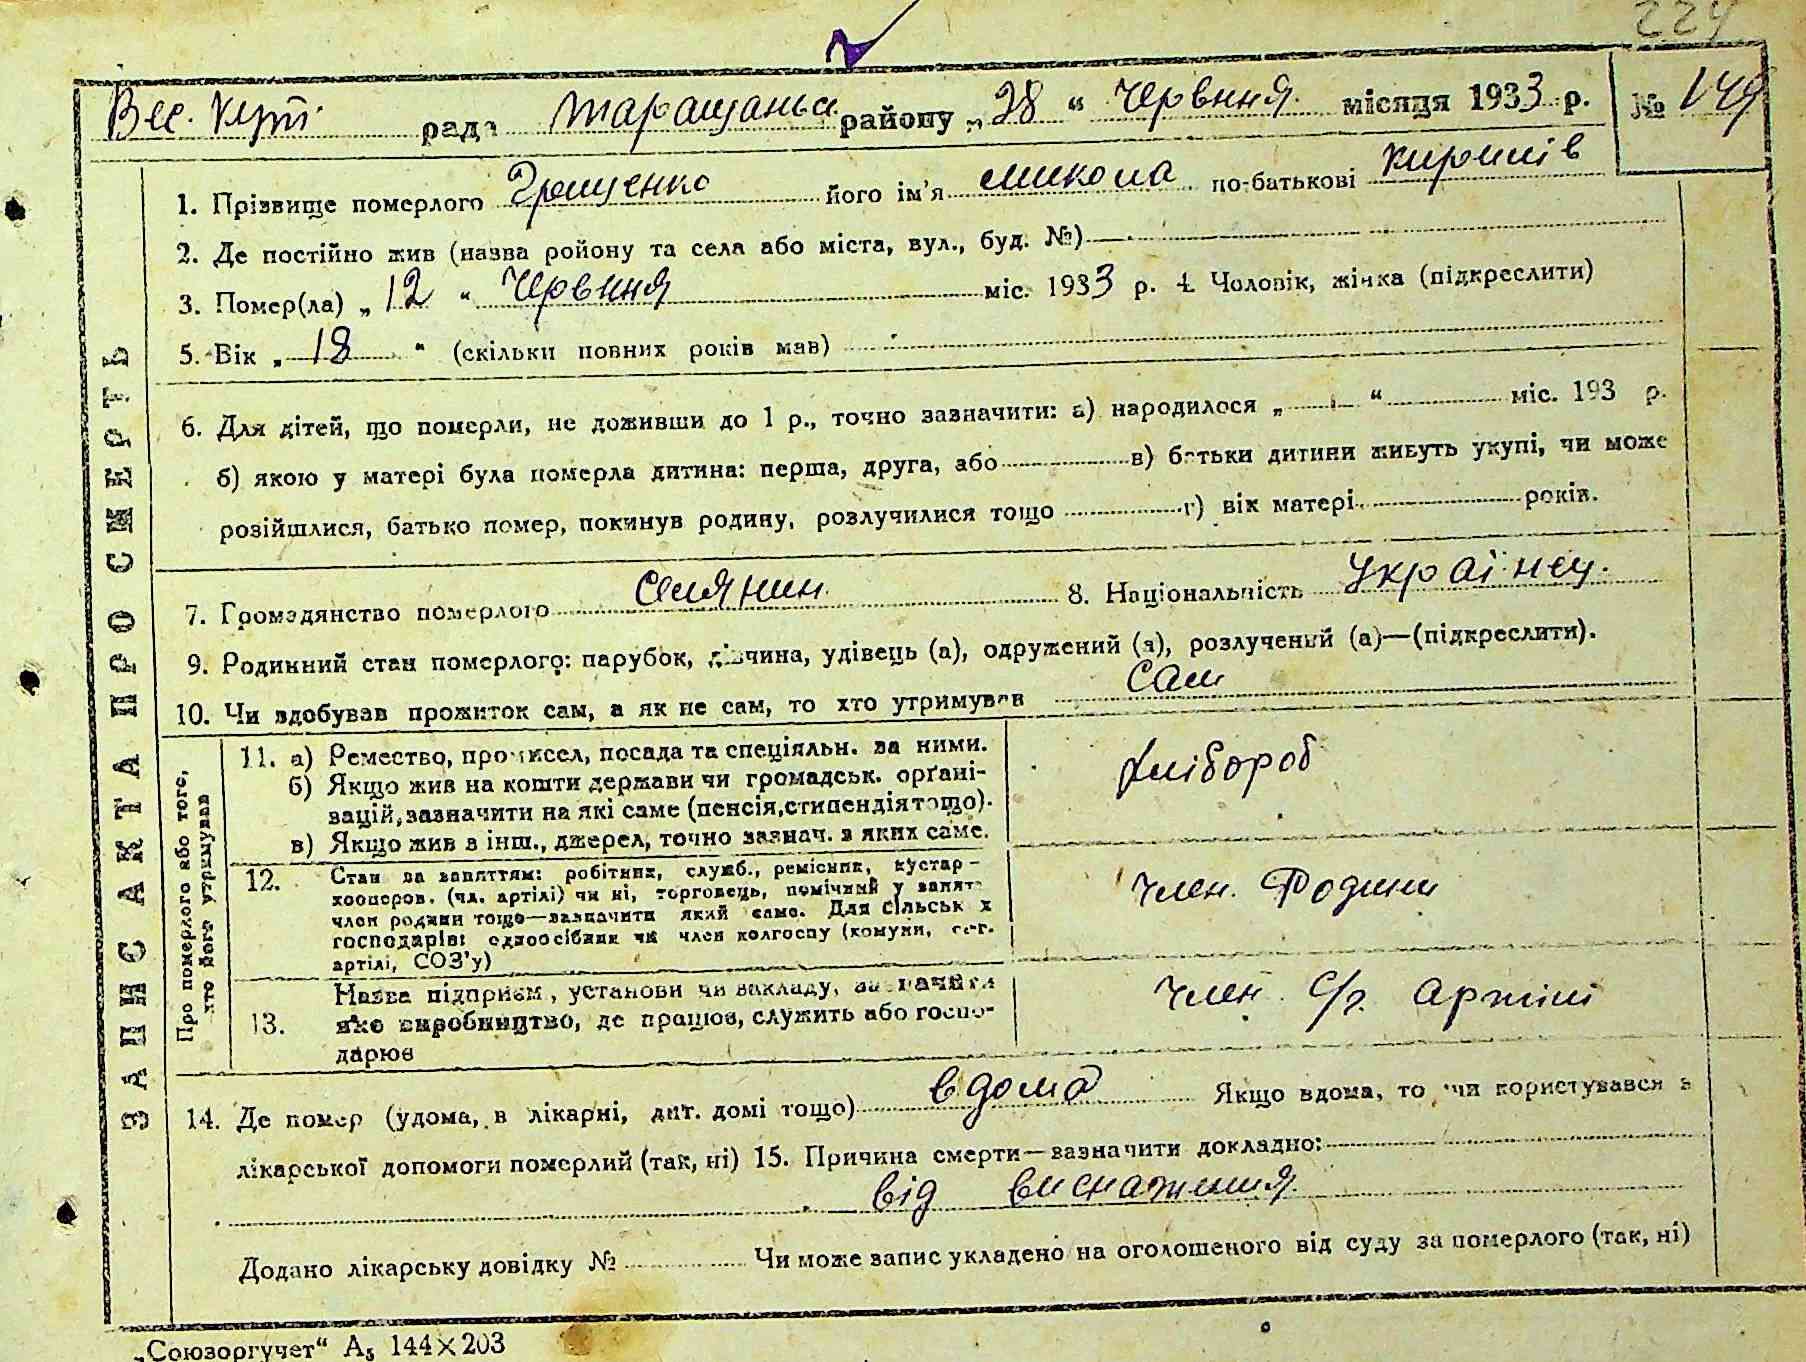 224
Вес. Кут. рада Таращансь. району „28“ Червння місяця 1933 р. № 149
1. Прізвище померлого Грищенко його ім'я Микола по-батькові Кирилів
2. Де постійно жив (назва ройону та села або міста, вул., буд. №)—
3. Помер(ла) „12“ Червння міс. 1933 р. 4. Чоловік, жінка (підкреслити)
5. Вік „18“ (скільки повних років мав)
6. Для дітей, що померли, не доживши до 1 р., точно зазначити: а) народилося „ “ міс. 193 р.
б) якою у матері була померла дитина: перша, друга, або в) батьки дитини живуть укупі, чи може
розійшлися, батько помер, покинув родину, розлучилися тощо г) вік матері років.
7. Громадянство померлого Селянин 8. Національність Українец.
9. Родинний стан померлого: парубок, дівчина, удівець (а), одружений (а), розлучений (а)—(підкреслити).
10. Чи здобував прожиток сам, а як не сам, то хто утримував сам
ЗАПИС АКТА ПРО СМЕРТЬ
Про померлого або того,
хто його утримував
11. а) Ремество, промисел, посада та спеціяльн. за ними.
б) Якщо жив на кошти держави чи громадськ. орґані-
зацій, зазначити на які саме (пенсія, стипендія тощо).
в) Якщо жив з інш., джерел, точно зазнач. з яких саме.
Хлібороб
12. Стан за заняттям: робітник, служб., ремісник, кустар-
кооперов. (чл. артілі) чи ні, торговець, помічний у занят.
член родини тощо—зазначити який саме. Для сільськ х
господарів: одноосібник чи член колгоспу (комуни, с.-г.
артілі, СОЗ'у)
Член. Родини
13. Назва підприєм., установи чи закладу, зазначити
яке виробництво, де працює, служить або госпо-
дарює
Член С/г. Артілі
14. Де помер (удома, в лікарні, дит. домі тощо) вдома Якщо вдома, то чи користувався з
лікарської допомоги померлий (так, ні) 15. Причина смерти—зазначити докладно:
від виснаження.
Додано лікарську довідку № Чи може запис укладено на оголошеного від суду за померлого (так, ні)
„Союзоргучет“ А₅ 144×203